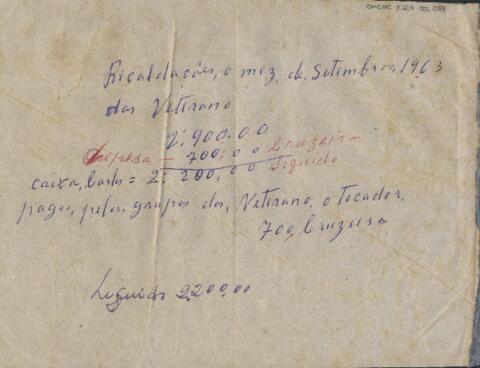 Recaldações, o mez, de, Setembro, 1963
dos Veterano
2:900,00
Despesa - 700,00 Cruzeiro
caixa, = 2:200,00 Liquido
pagos, pelos, grupos dos, Veterano, o tocador,
700, Cruzeiro
Liguido 2,200,00